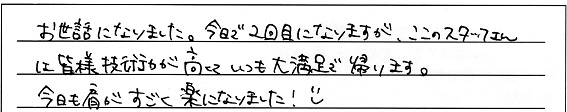 お世話になりました。今日で2回目になりますが、ここのスタッフさん
は皆様技術力が高くていつも大満足で帰ります。
今日も肩がすごく楽になりました!